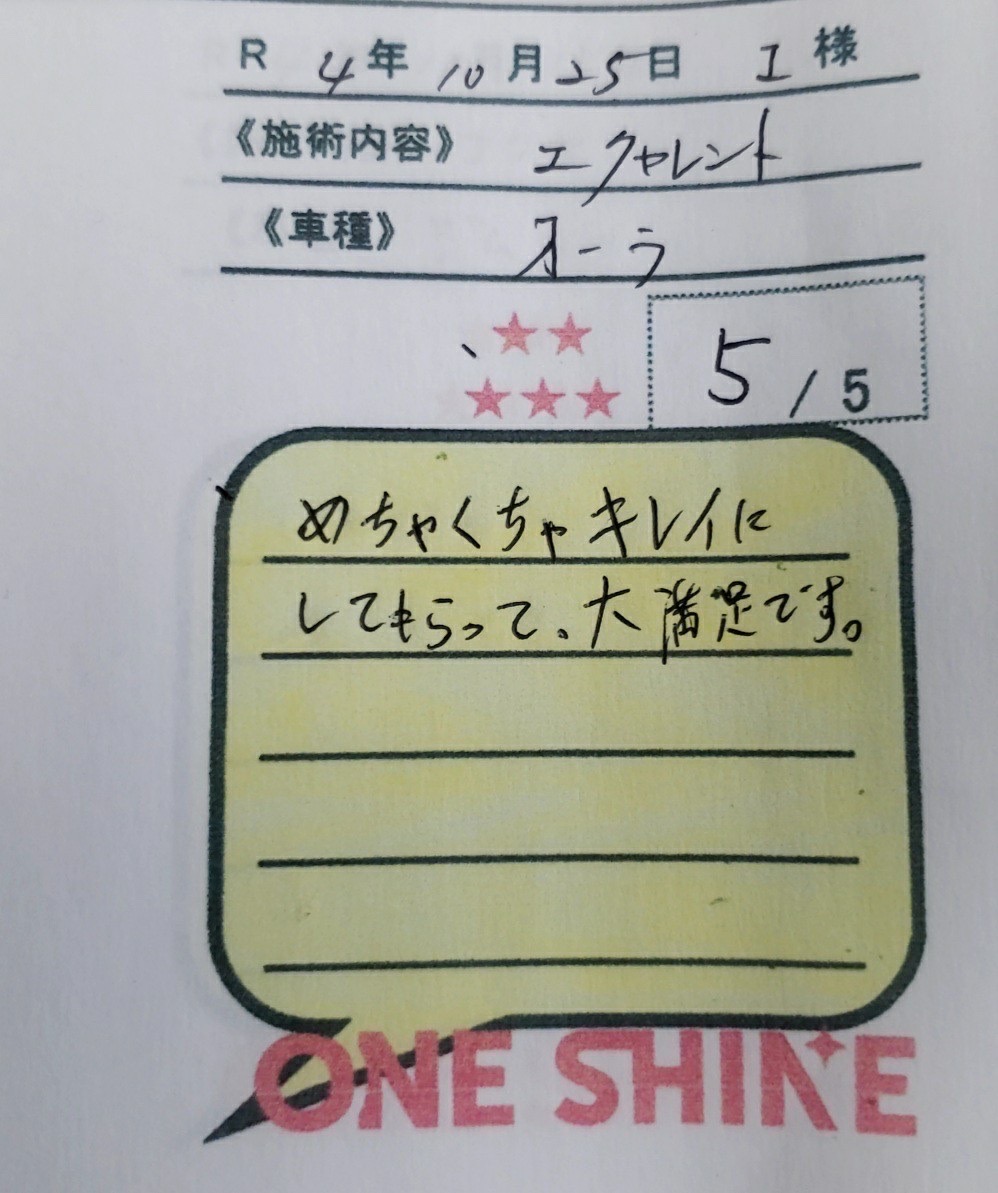 R 4年 10月25日 I 様
《施術内容》 エクャレント
《車種》 オーラ
5 / 5
めちゃくちゃキレイに
してもらって、大満足です。
ONE SHINE